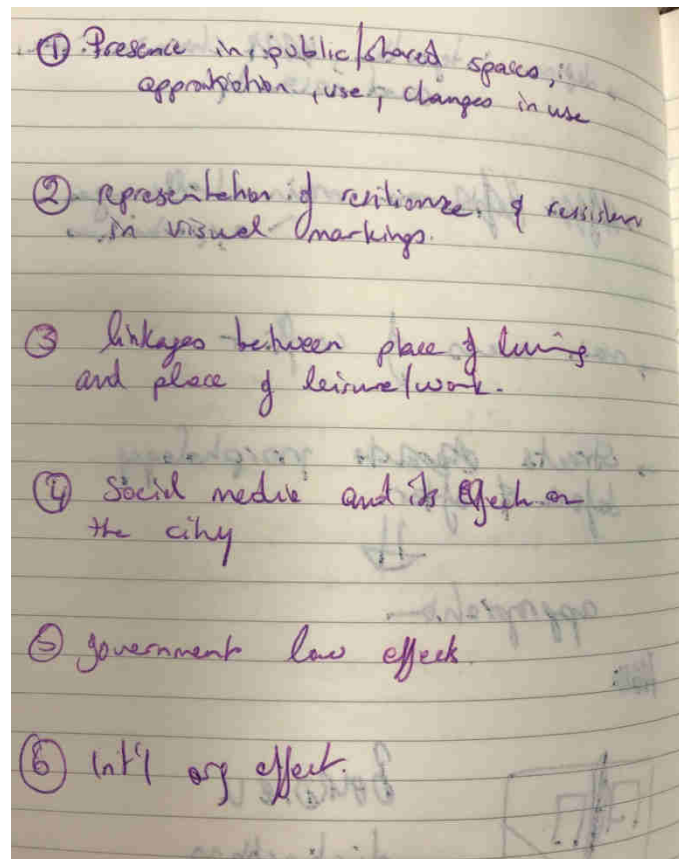 ① Presence in public/shared spaces,
appropriation, use, changes in use
② representation of resilience & resisten
in visual markings.
③ linkages between place of living
and place of leisure/work.
④ Social media and its effect on
the city
⑤ government law effect
⑥ Int'l org effect.